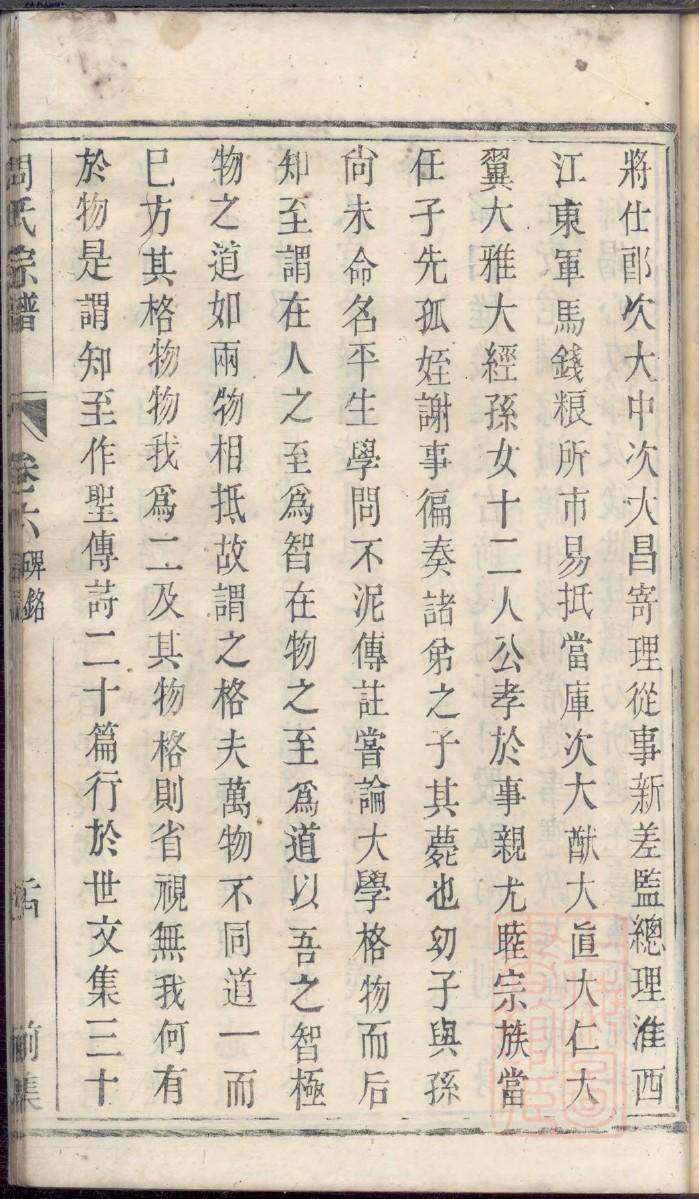 將仕郎次大中次大昌寄理從事新差監總理淮西
江東軍馬錢粮所市易抵當庫次大猷大眞大仁大
翼大雅大經孫女十二人公孝於事親尤睦宗族當
任子先孤姪謝事徧奏諸弟之子其薨也幼子與孫
尙未命名平生學問不泥傳註嘗論大學格物而后
知至謂在人之至爲智在物之至爲道以吾之智極
物之道如兩物相抵故謂之格夫萬物不同道一而
已方其格物物我爲二及其物格則省視無我何有
於物是謂知至作聖傳詩二十篇行於世文集三十
周氏宗譜 卷六 碑銘 前集